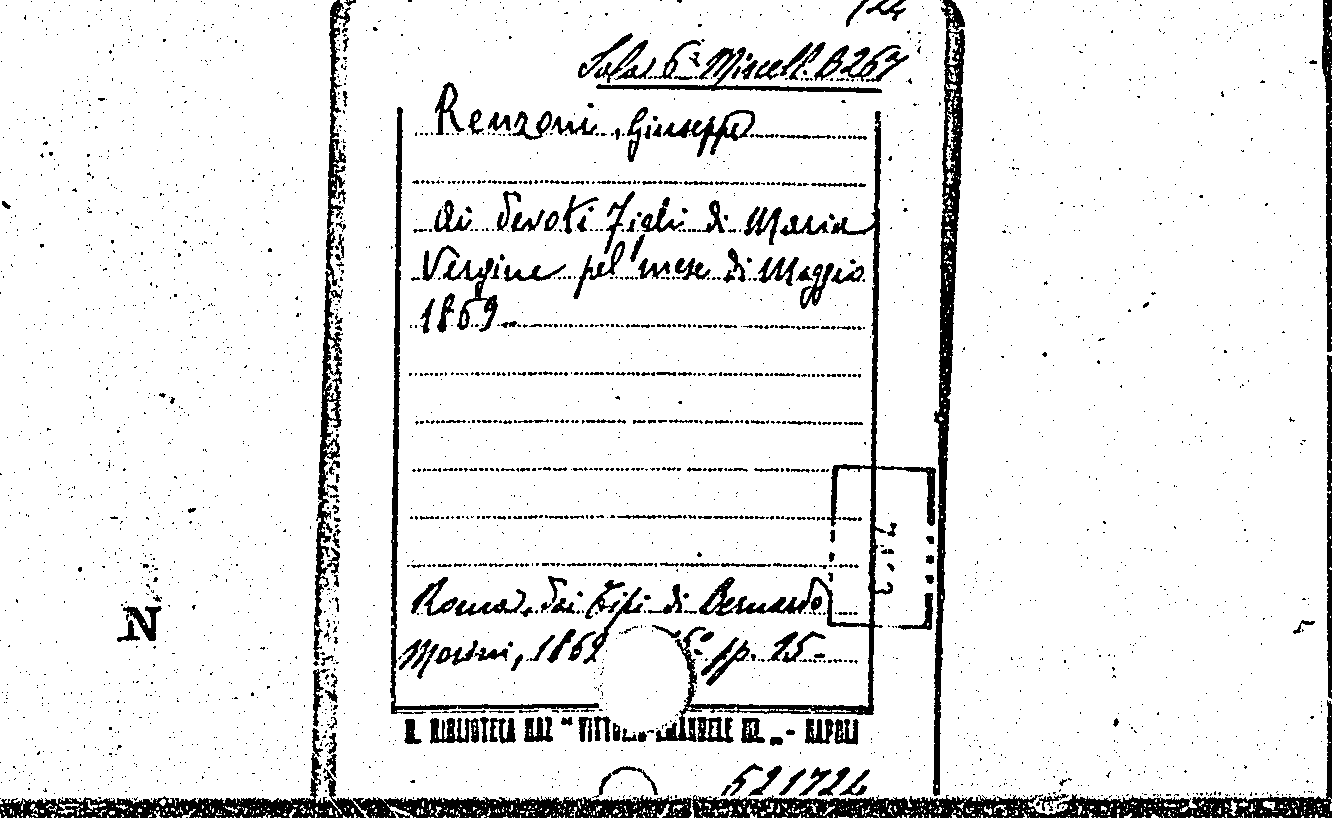 Sala 6ª Miscell. B267
Renzoni, Giuseppe
Ai devoti figli di Maria
Vergine pel mese di Maggio
1869.
Roma, dai Tipi di Bernardo
Morini, 1869 pp. 15-
R. BIBLIOTECA NAZ. "VITTORIO EMANUELE III" - NAPOLI
521724
N